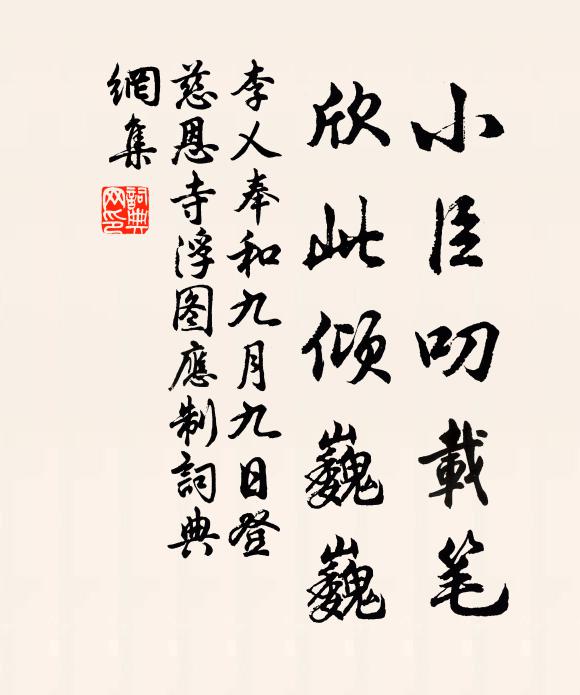 小臣叨載笔
欣此倾巍巍
李乂奉和九月九日登
慈恩寺浮图應制詞典
網集
詞典网印